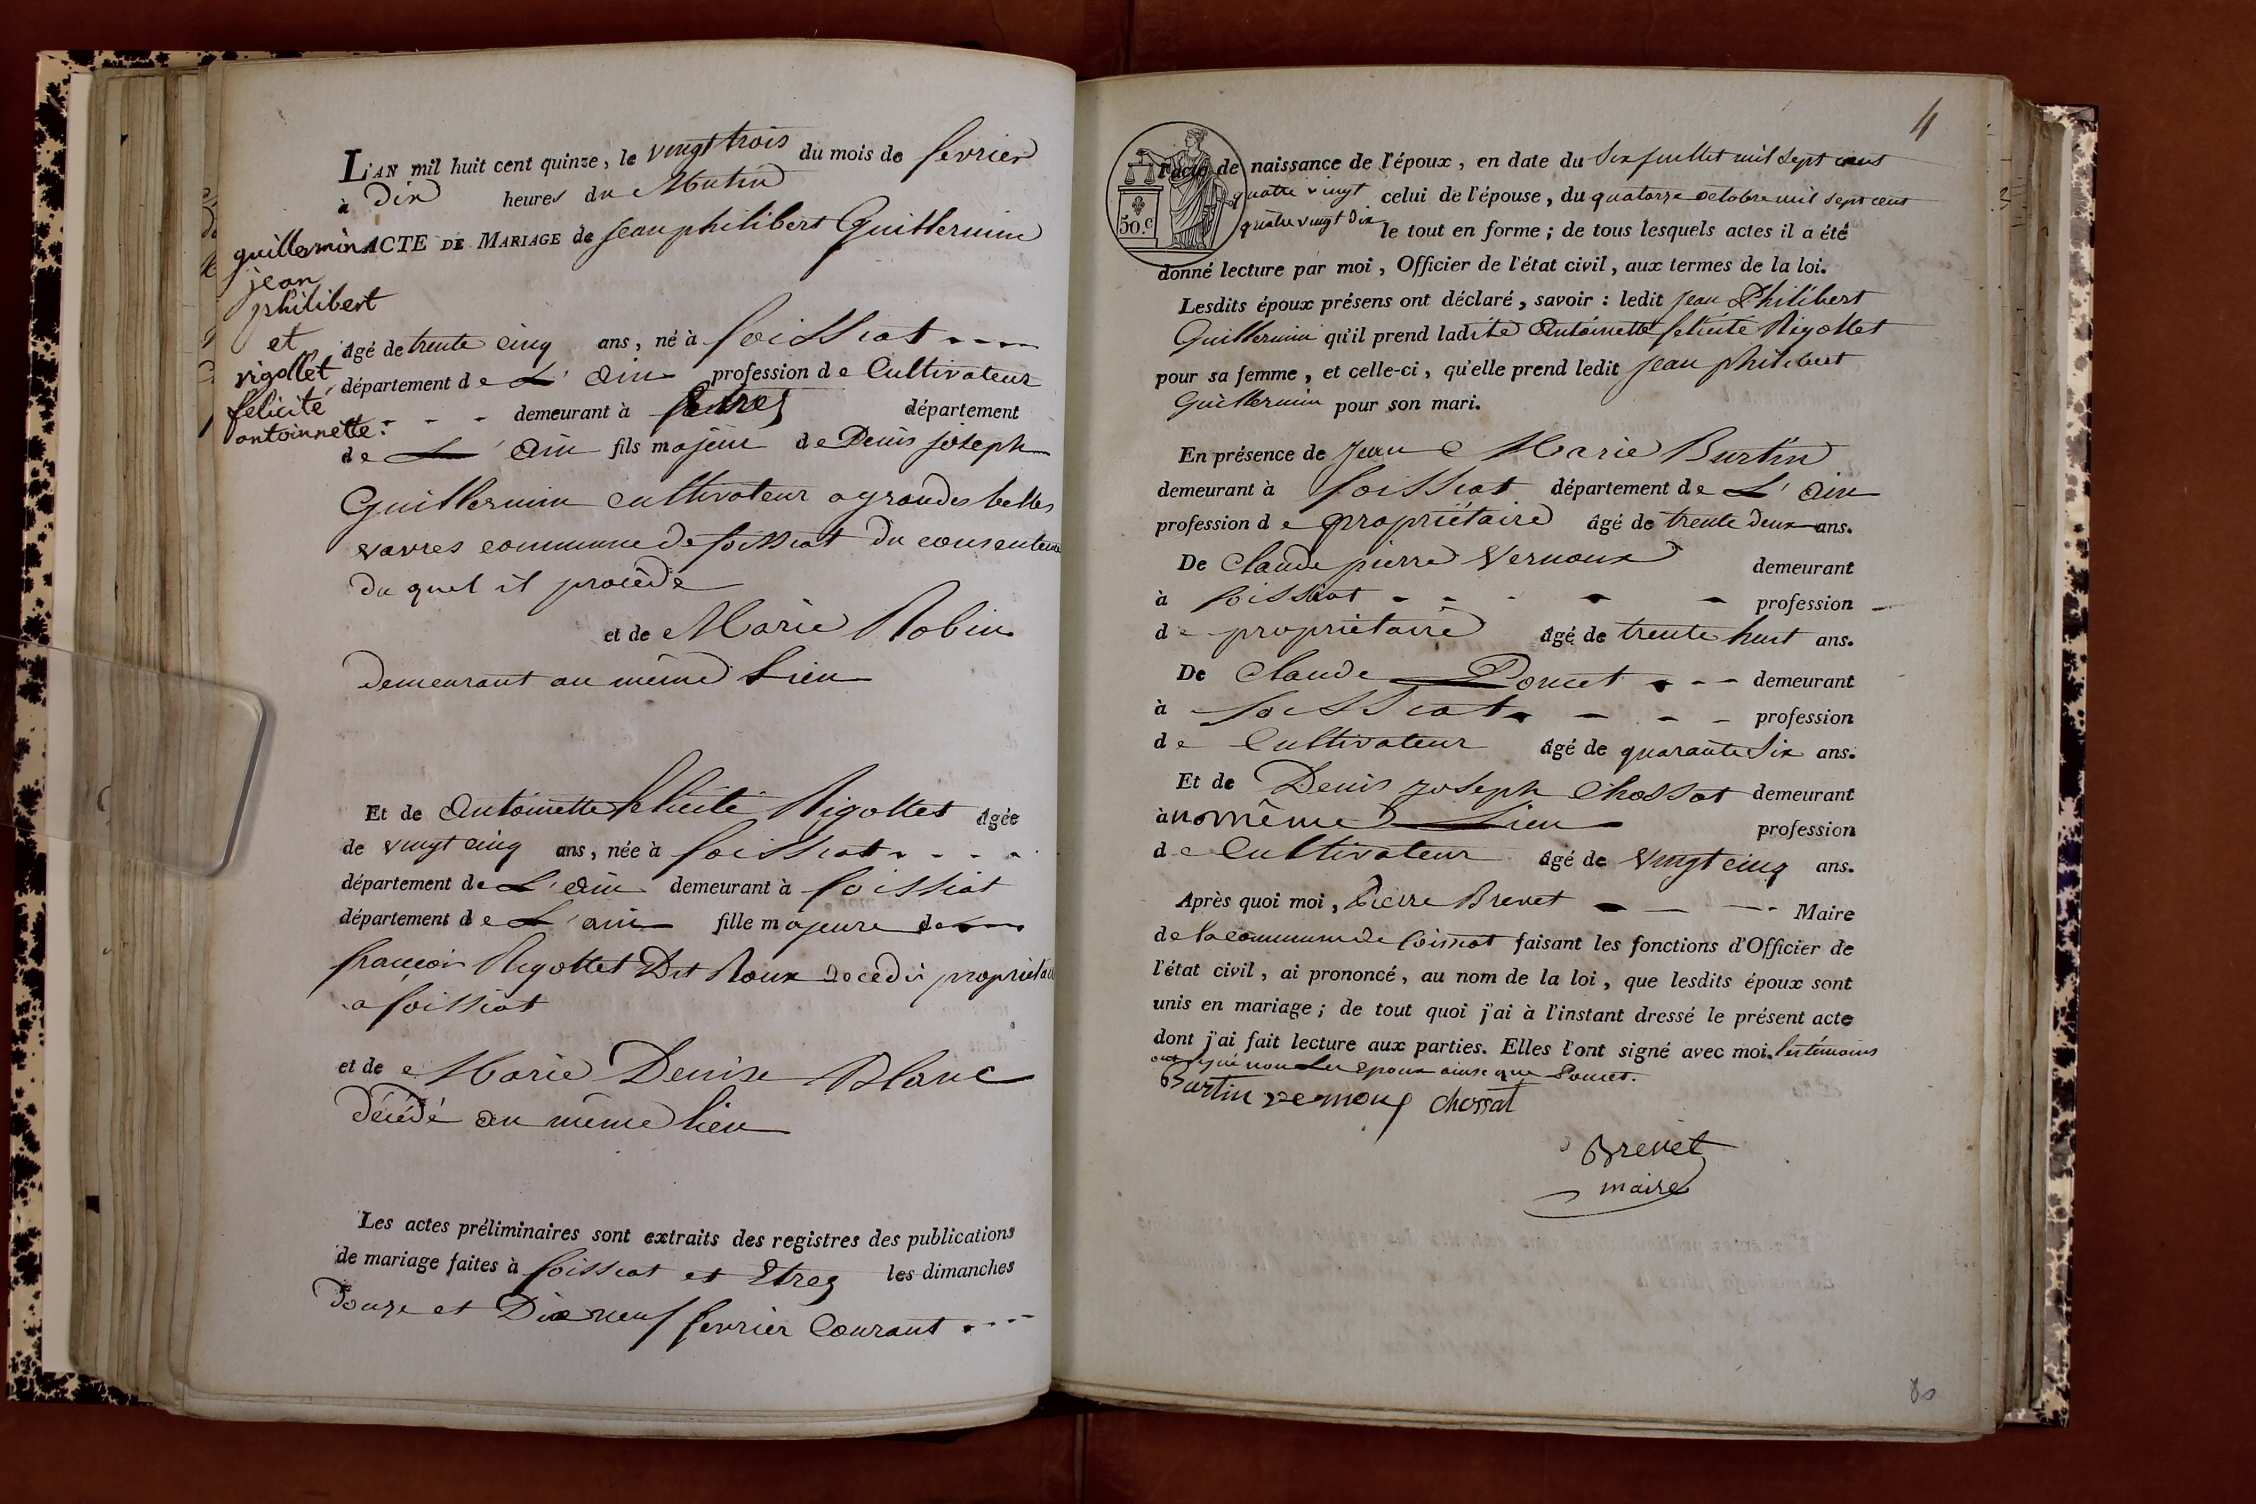 L'AN mil huit cent quinze, le vingt trois du mois de fevrier
à Dix heures du Matin
ACTE DE MARIAGE de jean philibert Guillermin
guillermin
jean
philibert
et
rigollet
felicité
antoinnette.
âgé de trente cinq ans, né à foissiat
département de L'ain profession de Cultivateur
demeurant à Etrez département
de L'ain fils majeur de Denis joseph
Guillermin cultivateur a grandes belles
vavres commune de foissiat du consenteme
du quel il procède
et de Marie Robin
demeurant au même Lieu
Et de Antoinette felicité Rigollet âgée
de vingt cinq ans, née à foissiat
département de L'ain demeurant à foissiat
département de L'ain fille majeure de
françois Rigollet Dit Roux décédé propriétai
a foissiat
et de Marie Denise Blanc
décédé au même lieu
Les actes préliminaires sont extraits des registres des publications
de mariage faites à foissiat et Etrez les dimanches
Douze et Dix neuf fevrier Courant
4
50.C
l'acte de naissance de l'époux, en date du Six juillet mil sept cent
quatre vingt celui de l'épouse, du quatorze octobre mil sept cent
quatre vingt Dix le tout en forme; de tous lesquels actes il a été
donné lecture par moi, Officier de l'état civil, aux termes de la loi.
Lesdits époux présens ont déclaré, savoir: ledit jean Philibert
Guillermin qu'il prend ladite Antoinette felicité Rigollet
pour sa femme, et celle-ci, qu'elle prend ledit jean philibert
Guillermin pour son mari.
En présence de jean Marie Burtin
demeurant à foissiat département de L'ain
profession de propriétaire âgé de trente deux ans.
De Claude pierre Vernoux demeurant
à foissiat profession
de propriétaire âgé de trente huit ans.
De Claude Poncet demeurant
à foissiat profession
de Cultivateur âgé de quarante Six ans.
Et de Denis joseph Chossat demeurant
au même Lieu profession
de Cultivateur âgé de vingt cinq ans.
Après quoi moi, Pierre Brevet Maire
de la commune de foissiat faisant les fonctions d'Officier de
l'état civil, ai prononcé, au nom de la loi, que lesdits époux sont
unis en mariage; de tout quoi j'ai à l'instant dressé le présent acte
dont j'ai fait lecture aux parties. Elles l'ont signé avec moi. les témoins
ont signé non Les epoux ainsi que Poncet.
Burtin vernoux chossat
Brevet
maire
80